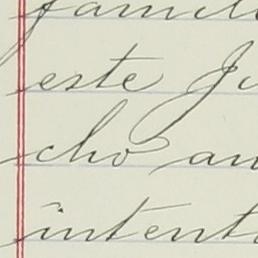 famili
este Ju
cho an
intent